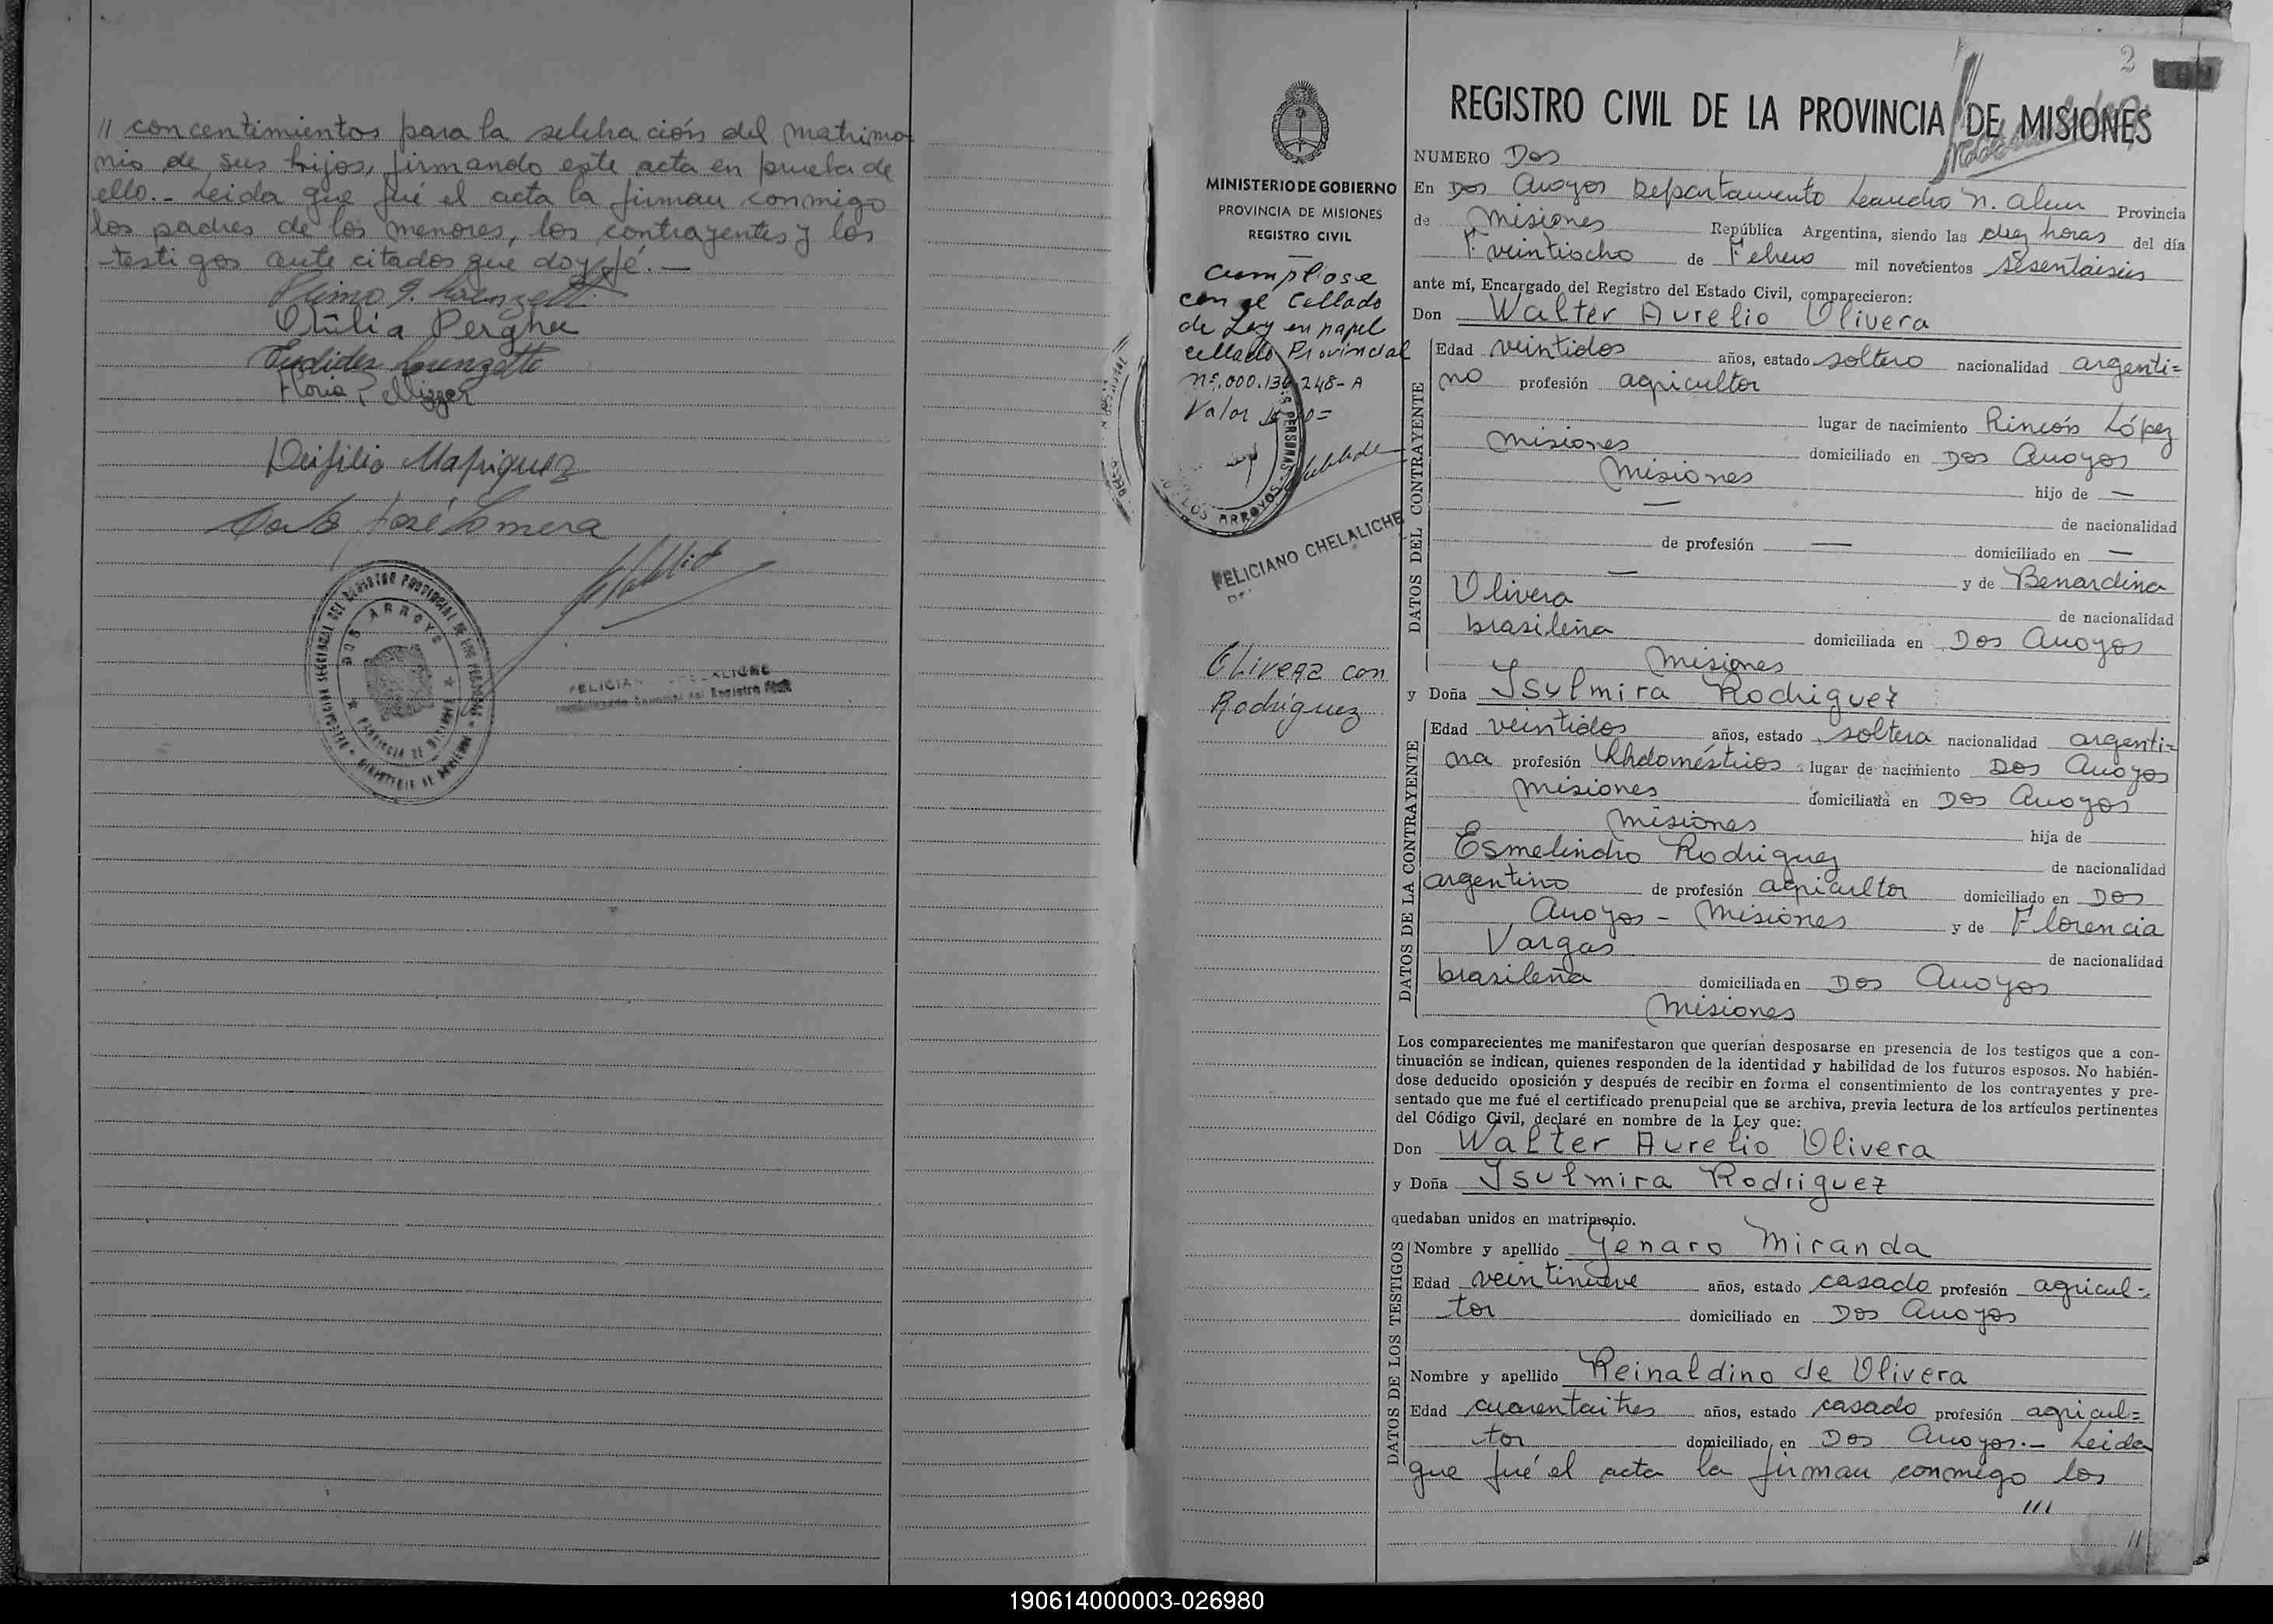 // concentimientos para la selebración del matrimo
nio de sus hijos, firmando este acta en prueba de
ello.- Leida que fué el acta la firman conmigo
los padres de los menores, los contrayentes y los
testigos ante citados que doy fé.-
Primo J. Lorenzetti
Otilia Pergher
Euclides Lorenzetti
Floria Pellizzer
Deifilio Mafriguez
José Somera
DOS ARROYOS
2
REGISTRO CIVIL DE LA PROVINCIA DE MISIONES
MINISTERIO DE GOBIERNO
PROVINCIA DE MISIONES
REGISTRO CIVIL
Cumpliose
con el Cellado
de Ley en papel
cellado Provincial
Nº.000.130.248-A
Valor
LOS ARROYOS
FELICIANO CHELALICHE
Olivera con
Rodríguez
NUMERO Dos
En Dos Arroyos Departamento Leandro N. Alem Provincia
de Misiones República Argentina, siendo las diez horas del día
veintiocho de Febrero mil novecientos sesentaiseis
ante mí, Encargado del Registro del Estado Civil, comparecieron:
Don Walter Aurelio Olivera
DATOS DEL CONTRAYENTE
Edad veintidos años, estado soltero nacionalidad argenti=
no profesión agricultor
lugar de nacimiento Rincón López
Misiones domiciliado en Dos Arroyos
Misiones hijo de —
— de nacionalidad
de profesión — domiciliado en —
— y de Benardina
Olivera de nacionalidad
brasileña domiciliada en Dos Arroyos
Misiones
y Doña Isulmira Rodriguez
DATOS DE LA CONTRAYENTE
Edad veintidos años, estado soltera nacionalidad argenti=
na profesión Qhdomésticos lugar de nacimiento Dos Arroyos
Misiones domiciliada en Dos Arroyos
Misiones hija de
Esmelindro Rodriguez de nacionalidad
argentino de profesión agricultor domiciliado en Dos
Arroyos - Misiones y de Florencia
Vargas de nacionalidad
brasileña domiciliada en Dos Arroyos
Misiones
Los comparecientes me manifestaron que querían desposarse en presencia de los testigos que a con-
tinuación se indican, quienes responden de la identidad y habilidad de los futuros esposos. No habién-
dose deducido oposición y después de recibir en forma el consentimiento de los contrayentes y pre-
sentado que me fué el certificado prenupcial que se archiva, previa lectura de los artículos pertinentes
del Código Civil, declaré en nombre de la Ley que:
Don Walter Aurelio Olivera
y Doña Isulmira Rodriguez
quedaban unidos en matrimonio.
DATOS DE LOS TESTIGOS
Nombre y apellido Genaro Miranda
Edad veintinueve años, estado casado profesión agricul-
tor domiciliado en Dos Arroyos
Nombre y apellido Reinaldino de Olivera
Edad cuarentaitres años, estado casado profesión agricul=
tor domiciliado en Dos Arroyos.- Leida
que fué el acta la firman conmigo los
///
//
190614000003-026980